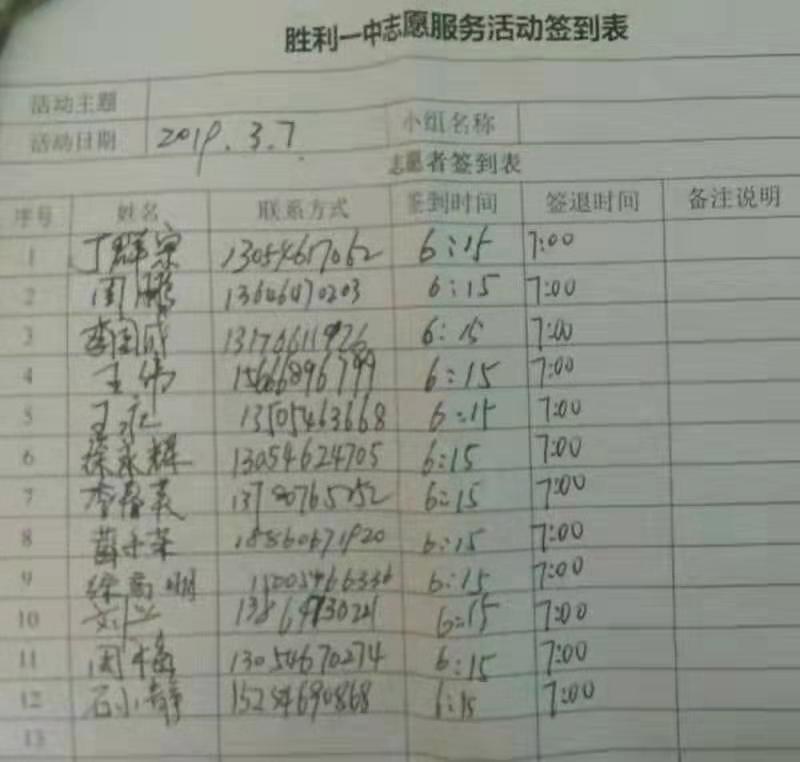 胜利一中志愿服务活动签到表
活动主题
活动日期 2019.3.7 小组名称
志愿者签到表
序号 姓名 联系方式 签到时间 签退时间 备注说明
1 丁群 13054617062 6:15 7:00
2 周鹏 13646470203 6:15 7:00
3 李国成 6:15 7:00
4 王伟 15666896799 6:15 7:00
5 王 13505463668 6:15 7:00
6 徐永辉 13054624705 6:15 7:00
7 李春英 6:15 7:00
8 6:15 7:00
9 徐 明 15005466336 6:15 7:00
10 刘兴 6:15 7:00
11 周梅 13054670274 6:15 7:00
12 石小静 15254690868 6:15 7:00
13